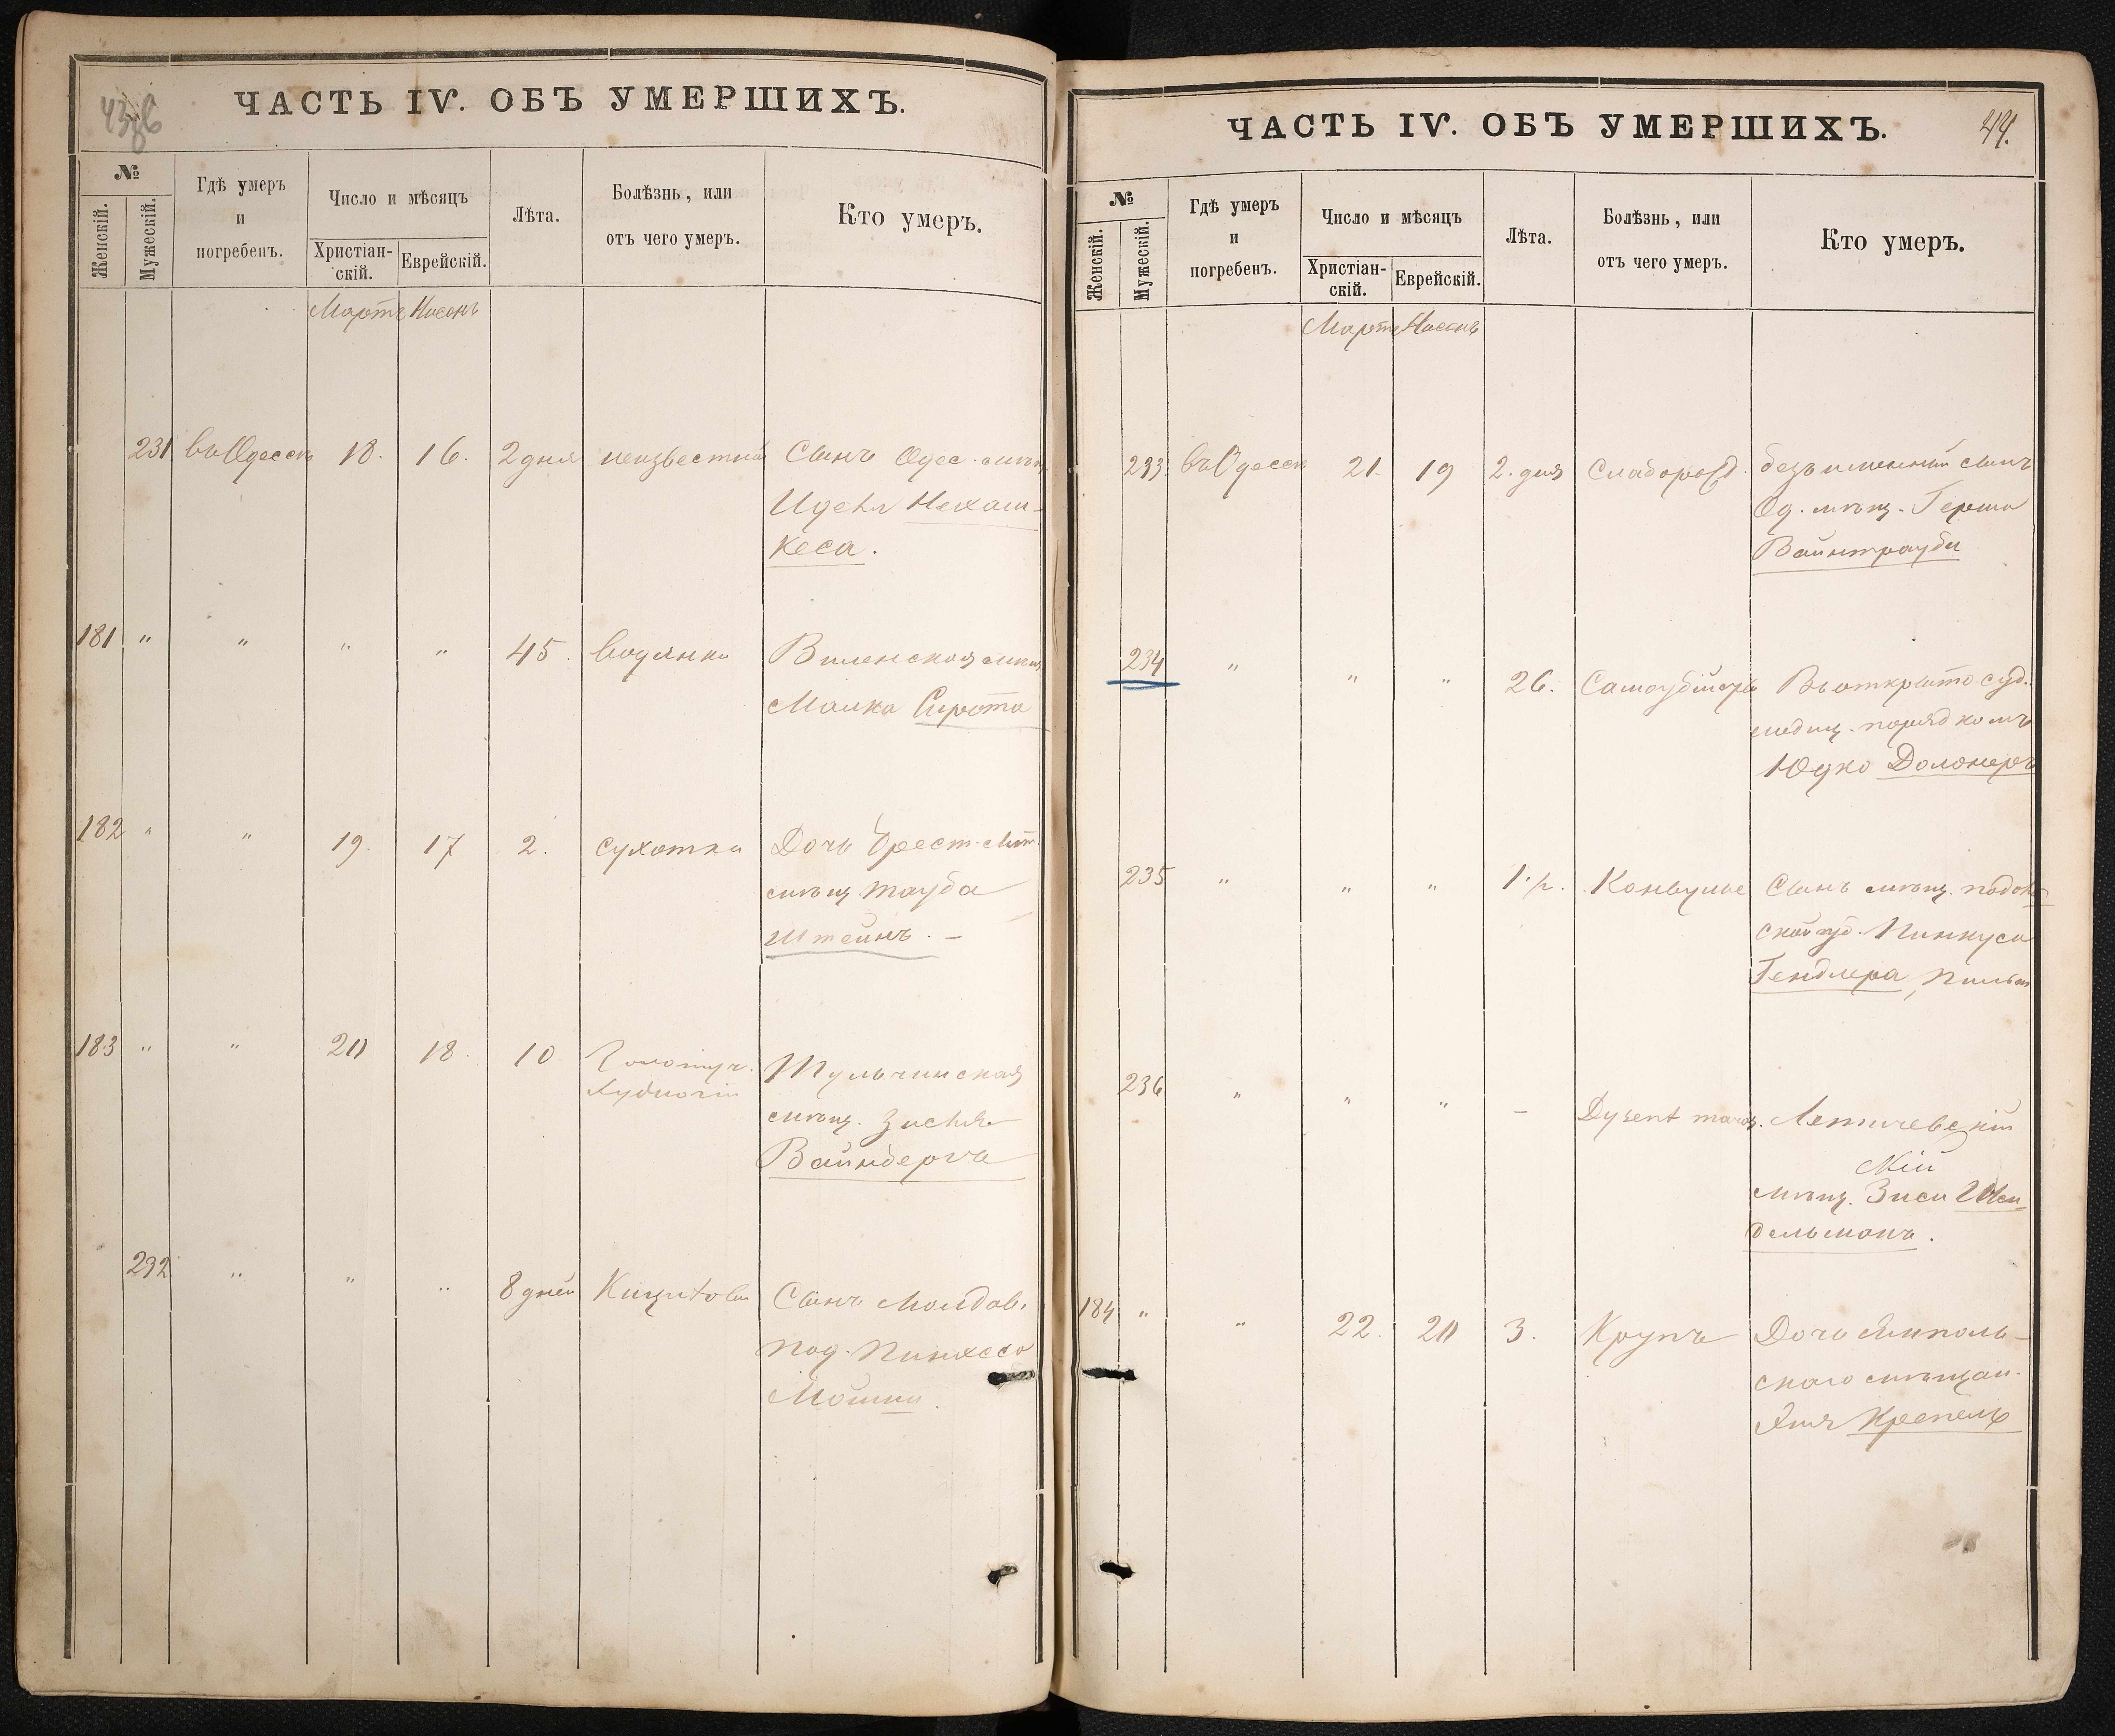 ЧАСТЬ IV. ОБЪ УМЕРШИХЪ.
№
Женскій.
Мужескій.
Гдѣ умеръ
и
погребенъ.
Число и мѣсяцъ
Христіан-
скій.
Еврейскій.
Лѣта.
Болѣзнь, или
отъ чего умеръ.
Кто умеръ.
Мартъ Нисонъ
231 въ Одессѣ 18. 16. 2 дня неизвестной Сынъ Одес. мѣщ.
Иделя Нехам-
кеса.
181 " " " " 45. водянки Виленская мѣщ.
Малка Сирота
182 " " 19. 17 2. сухотки Дочь Брест-Лит.
мѣщ. Тауба
Штейнъ. –
183 " " 20 18. 10 Тульчинская
мѣщ. Зисля
Вайнбергъ
232 " " " 8 дней Сынъ Молдав.
под. Пинхеса
Мошки.
ЧАСТЬ IV. ОБЪ УМЕРШИХЪ.
44.
№
Женскій.
Мужескій.
Гдѣ умеръ
и
погребенъ.
Число и мѣсяцъ
Христіан-
скій.
Еврейскій.
Лѣта.
Болѣзнь, или
отъ чего умеръ.
Кто умеръ.
Мартъ Нисонъ
233. въ Одессѣ 21. 19 2. дня Слаборожд. безъименный сынъ
Од. мѣщ. Герша
Вайнтрауба
234 " " " 26. Самоубійство Вь открыто суд.
медиц. порядкомъ
Юдко Долонеръ
235 " " " 1. г. Конвульс Сынъ мѣщ. подоль
ской губ. Пинкуса
Гендлера,
236 " " " – Dysent Летичевскій
кій
мѣщ. Зиси
дельманъ.
184 " " 22. 20 3. Крупъ Дочь Ямполь-
скаго мѣщан.
Крепель